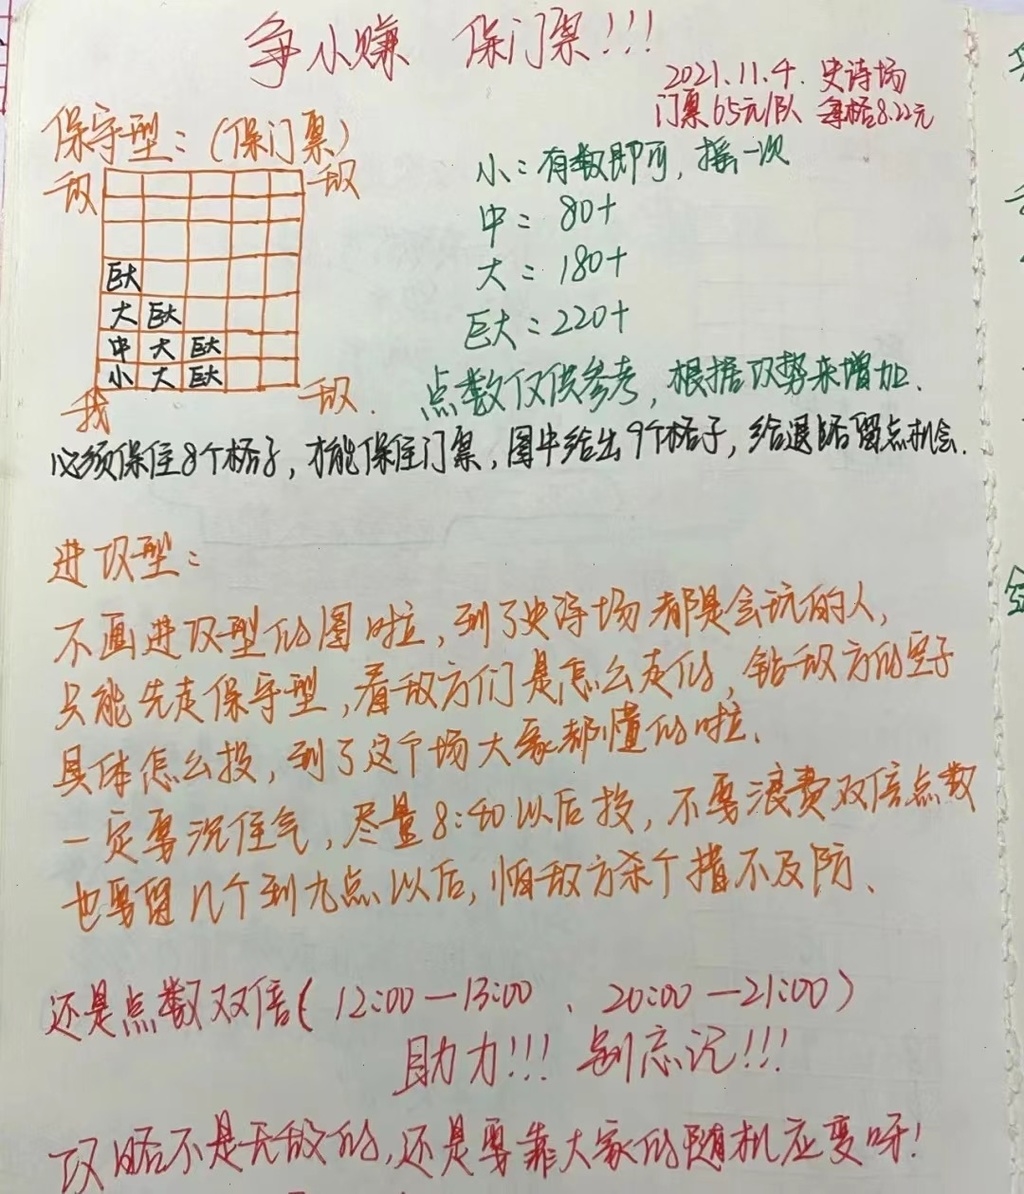 争小赚 保门票!!!
2021.11.4. 史诗场
门票65元/队 每格8.22元
保守型：(保门票)
敌 敌
小：有数即可，摇一次
中：80+
大：180+
巨大：220+
巨大
大 巨大
中 大 巨大
小 大 巨大
我 敌.
点数仅供参考，根据攻势来增加.
必须保住8个格子，才能保住门票，图中给出9个格子，给退路留点机会.
进攻型：
不画进攻型的图啦，到了史诗场都是会玩的人，
只能先走保守型，看敌方们是怎么走的，钻敌方的空子
具体怎么投，到了这个场大家都懂的啦.
一定要沉住气，尽量8:40以后投，不要浪费双倍点数
也要留几个到九点以后，怕敌方杀个措不及防、
还是点数双倍(12:00—13:00、20:00—21:00)
助力!!! 别忘记!!!
攻略不是无敌的，还是要靠大家的随机应变呀!